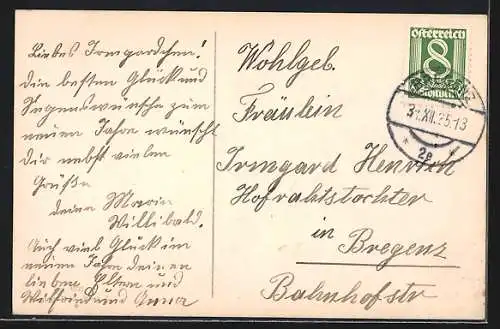 Liebes Irmgardchen!
Die besten Glück und
Segenswünsche zum
neuen Jahre wünscht
Dir nebst vielen
Grüße
deine Maria
Willibald.
Auch viel Glück im
neuen Jahr deinen
lieben Eltern und
Wilfried und Anna
Wohlgeb.
Fräulein
Irmgard Henrich
Hofrahtstochter
in
Bregenz
Bahnhofstr
Österreich
8
Groschen
31.XII.25.13
* 2e *